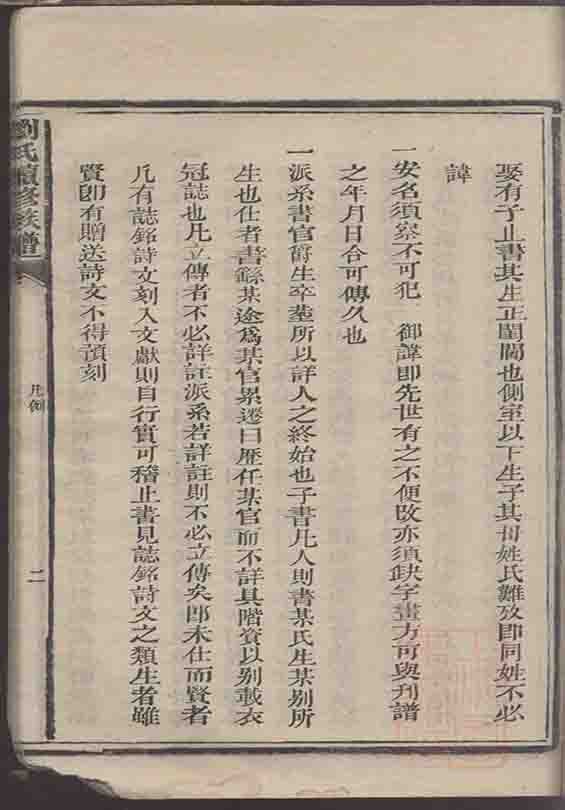 娶有子止書其生正閨閫也側室以下生子其母姓氏難攷即同姓不必
諱
一安名須察不可犯 御諱即先世有之不便改亦須缺字畫方可與刊譜
之年月日合可傳久也
一派系書官爵生卒塟所以詳人之終始也子書凡人則書某氏生某别所
生也仕者書繇某途爲某官累遷曰歷仕某官而不詳其階資以别載衣
冠誌也凡立傳者不必詳註派系若詳註則不必立傳矣即未仕而賢者
凡有誌銘詩文刻入文獻則自行實可稽止書見誌銘詩文之類生者雖
賢卽有贈送詩文不得預刻
劉氏續修族譜
凡例
二